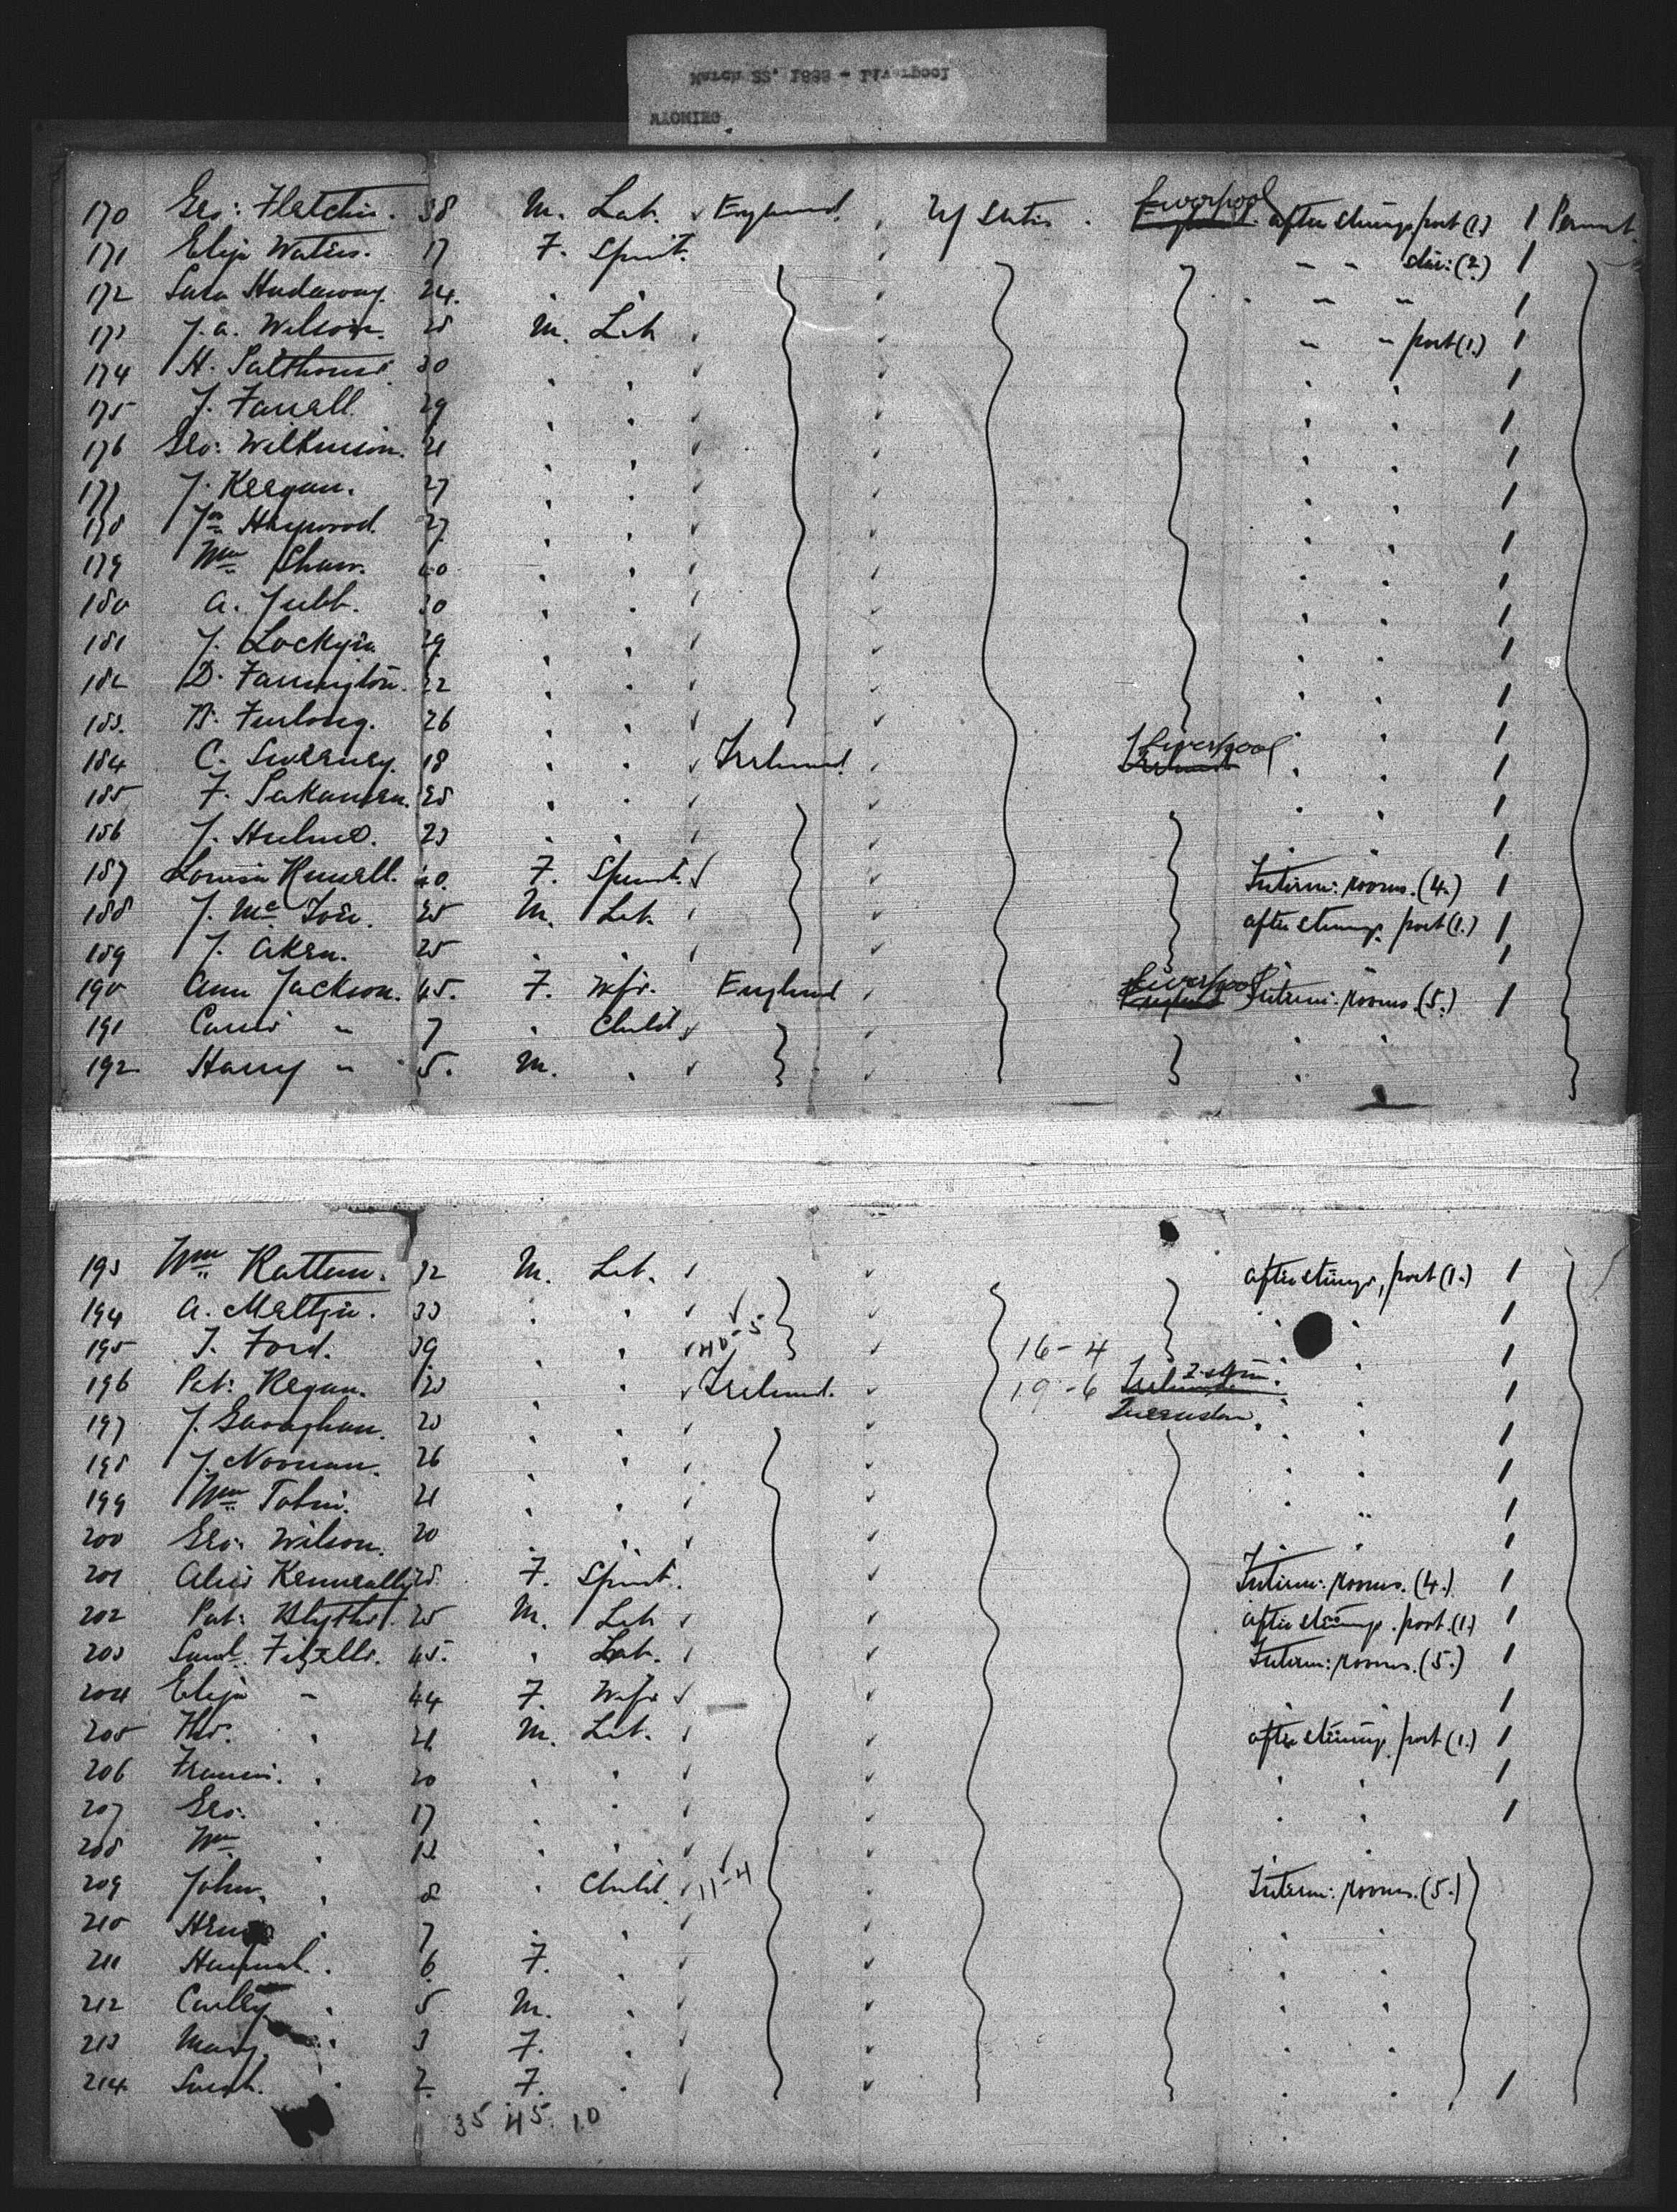 March 22, 1888 - Liverpool
WYOMING
170 Geo: Fletcher. 38 M. Lab. England. U/ States. Liverpool after steerage port (1.) 1 Permt.
171 Eliza Waters. 17 F. Spinst. " " div: (2.) 1
172 Sara Hadaway. 24. " " " " 1
173 J. A. Wilson. 28 M. Lab " " port (1.) 1
174 H. Salthouse. 30 " " " " 1
175 J. Farrell. 29 " " " " 1
176 Geo: Wilkinson. 21 " " " " 1
177 J. Keegan. 27 " " " " 1
178 Jas Haywood. 27 " " " " 1
179 Wm Shaw. 40 " " " " 1
180 A. Jubb. 30 " " " " 1
181 J. Lockyer 29 " " " " 1
182 D. Farrington. 22 " " " " 1
183. B. Furlong. 26 " " " " 1
184 C. Sweeney. 18 " " Ireland. Liverpool " " 1
185 F. 28 " " " " 1
186 J. Hulme. 23 " " " " 1
187 Louisa 40. F. Spinst. Interm: rooms. (4.) 1
188 J. Mc 25 M. Lab. after steerage port (1.) 1
189 J. Aken. 25 " " " " 1
190 Ann Jackson. 45. F. Wife. England Liverpool Interm: rooms. (5.) 1
191 Carrie " 7 " Child " "
192 Harry " 5. M. " " "
193 Wm Rattem. 32 M. Lab. after steerage, port (1.) 1
194 A. 33 " " " " 1
195 J. Ford. 39 " " 40-5 16-4 " " 1
196 Pat: Regan. 20 " Ireland. 19-6 Queenstown " " 1
197 J. Gavaghan. 20 " " " " 1
198 J. Noonan. 26 " " " " 1
199 Wm Tobin. 21 " " " " 1
200 Geo: Wilson. 20 " " " " 1
201 Alice Kenneally 28. F. Spinst. Interm: rooms. (4.) 1
202 Pat: Blythe. 25 M. Lab after steerage. port. (1.) 1
203 Saml. 45. " Lab. Interm: rooms. (5.) 1
204 Eliza " 44 F. Wife " " 1
205 Thos. " 21 M. Lab. after steerage port (1.) 1
206 Francis. " 20 " " " " 1
207 Geo: " 17 " " " " 1
208 Wm " " " "
209 John. " 8 " Child. 11-4 Interm: rooms. (5.)
210 " 7 " " " "
211 Hannah. " 6 F. " " "
212 " 5 M. " " "
213 Mary. " 3 F. " " "
214 Sarah. " 2 F. " " " 1
35 45. 10